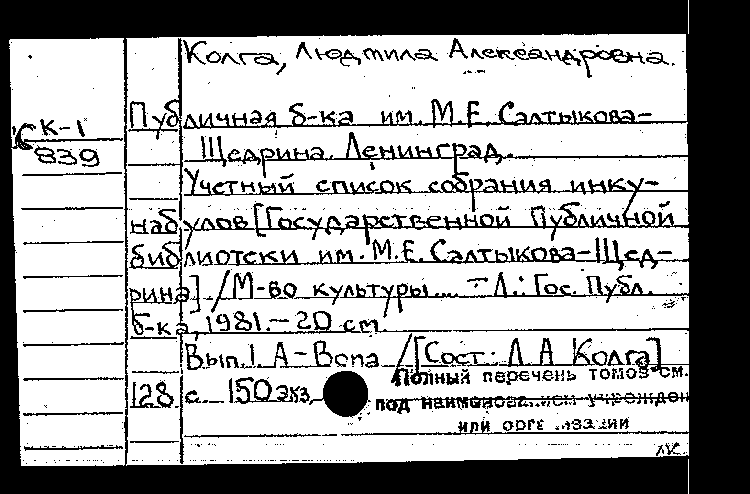 Колга, Людмила Александровна.
Публичная б-ка им. М.Е. Салтыкова-
К-1
839
Щедрина. Ленинград.
Учетный список собрания инку-
набулов [Государственной Публичной
библиотеки им. М.Е. Салтыкова-Щед-
рина] / М-во культуры... - Л.: Гос. Публ.
б-ка, 1981. - 20 см.
Вып. 1. А-Bona / [Сост. Л.А Колга]
128 с. 150 экз.
Полный перечень томов см.
под наименованием учрежден
или организации